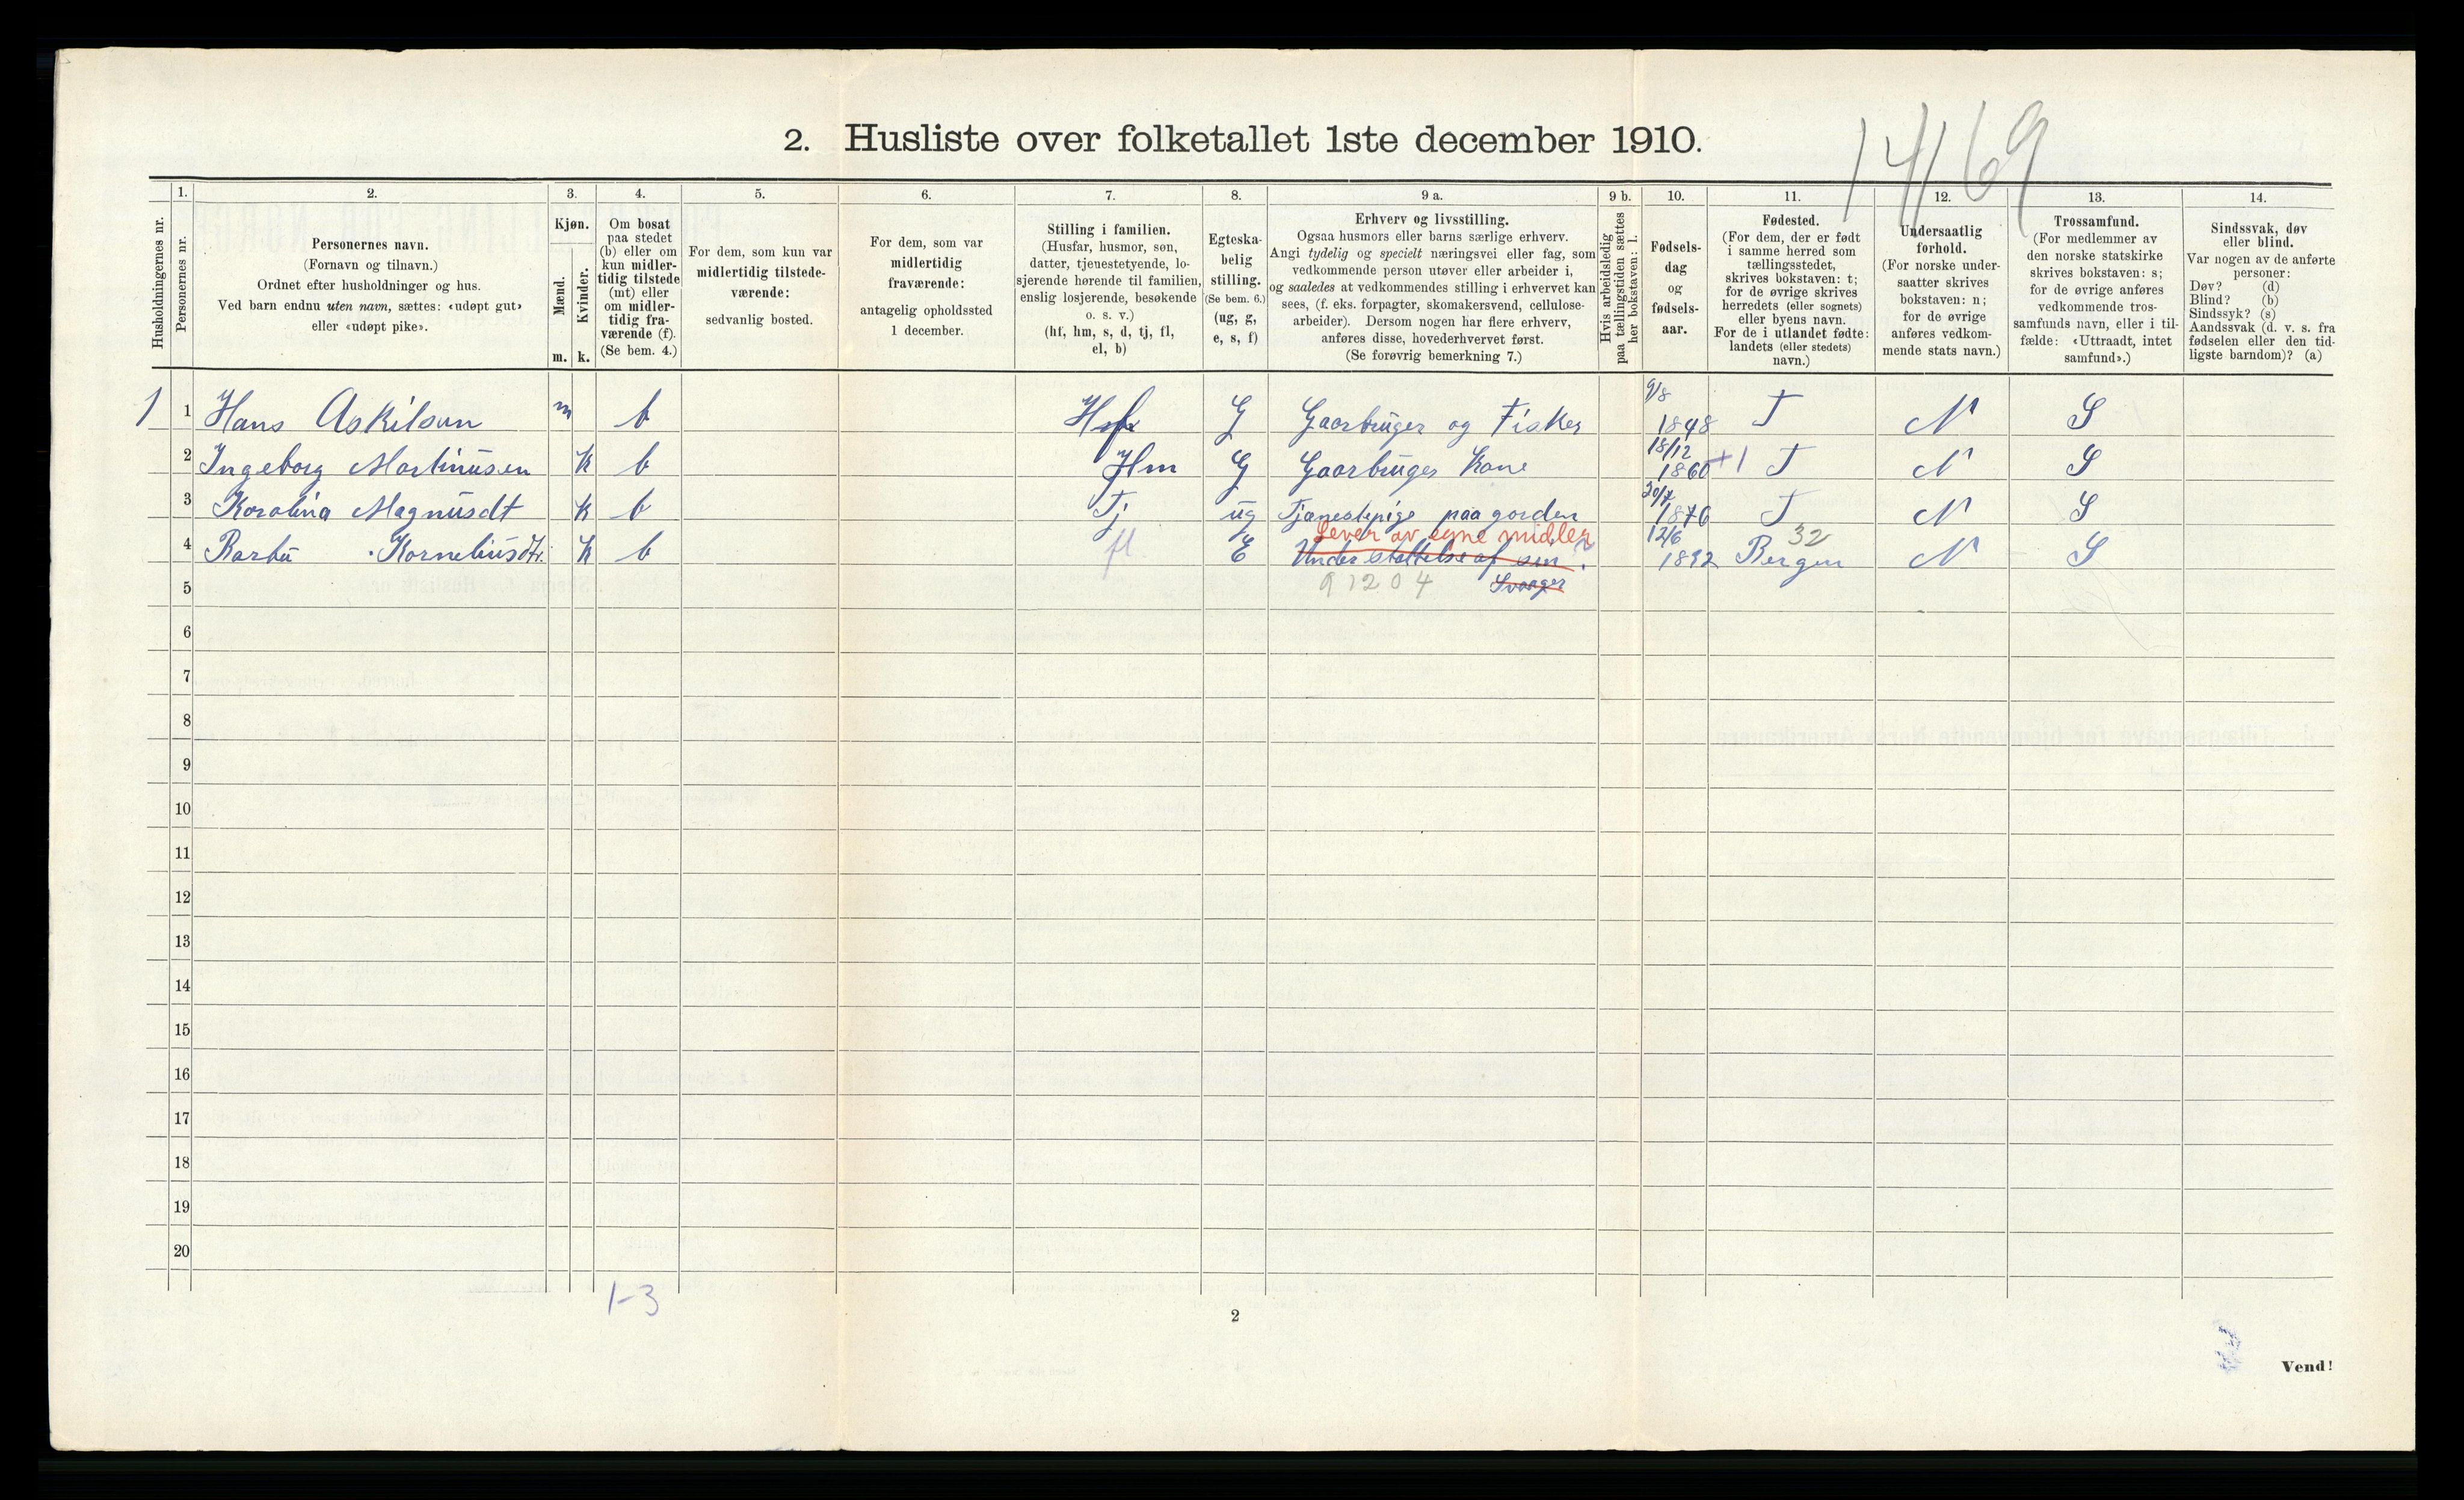 14169
2. Husliste over folketallet 1ste december 1910.
Husholdningernes nr.
1.
Personernes nr.
2.
Personernes navn.
(Fornavn og tilnavn.)
Ordnet efter husholdninger og hus.
Ved barn endnu uten navn, sættes: «udøpt gut»
eller «udøpt pike».
3.
Kjøn.
Mænd.
Kvinder.
m. k.
4.
Om bosat
paa stedet
(b) eller om
kun midler-
tidig tilstede
(mt) eller
om midler-
tidig fra-
værende (f).
(Se bem. 4.)
5.
For dem, som kun var
midlertidig tilstede-
værende:
sedvanlig bosted.
6.
For dem, som var
midlertidig
fraværende:
antagelig opholdssted
1 december.
7.
Stilling i familien.
(Husfar, husmor, søn,
datter, tjenestetyende, lo-
sjerende hørende til familien,
enslig losjerende, besøkende
o. s. v.)
(hf, hm, s, d, tj, fl,
el, b)
8.
Egteska-
belig
stilling.
(Se bem. 6.)
(ug, g,
e, s, f)
9 a.
Erhverv og livsstilling.
Ogsaa husmors eller barns særlige erhverv.
Angi tydelig og specielt næringsvei eller fag, som
vedkommende person utøver eller arbeider i,
og saaledes at vedkommendes stilling i erhvervet kan
sees, (f. eks. forpagter, skomakersvend, cellulose-
arbeider). Dersom nogen har flere erhverv,
anføres disse, hovederhvervet først.
(Se forøvrig bemerkning 7.)
9 b.
Hvis arbeidsledig
paa tællingstiden sættes
her bokstaven: l.
10.
Fødsels-
dag
og
fødsels-
aar.
11.
Fødested.
(For dem, der er født
i samme herred som
tællingsstedet,
skrives bokstaven: t;
for de øvrige skrives
herredets (eller sognets)
eller byens navn.
For de i utlandet fødte:
landets (eller stedets)
navn.)
12.
Undersaatlig
forhold.
(For norske under-
saatter skrives
bokstaven: n;
for de øvrige
anføres vedkom-
mende stats navn.)
13.
Trossamfund.
(For medlemmer av
den norske statskirke
skrives bokstaven: s;
for de øvrige anføres
vedkommende tros-
samfunds navn, eller i til-
fælde: «Uttraadt, intet
samfund».)
14.
Sindssvak, døv
eller blind.
Var nogen av de anførte
personer:
Døv? (d)
Blind? (b)
Sindssyk? (s)
Aandssvak (d. v. s. fra
fødselen eller den tid-
ligste barndom)? (a)
1 1 Hans Askilsen m b Hf G Gaarbruger og Fisker 9/8 1848 T N S
2 Ingeborg Martinusen K b Hm G Gaarbruges Kone 18/12 1860 +1 T N S
3 Karolina Magnusdt K b Tj ug Tjænestepige paa gorden 20/7 1876 T N S
Lever av egne midler
4 Barbu Korneliusdtr. K b fl E Understøttelse af sin 12/6 1832 32 Bergen N S
5 91204 Svoger
6
7
8
9
10
11
12
13
14
15
16
17
18
19
20
1-3
2
Vend!